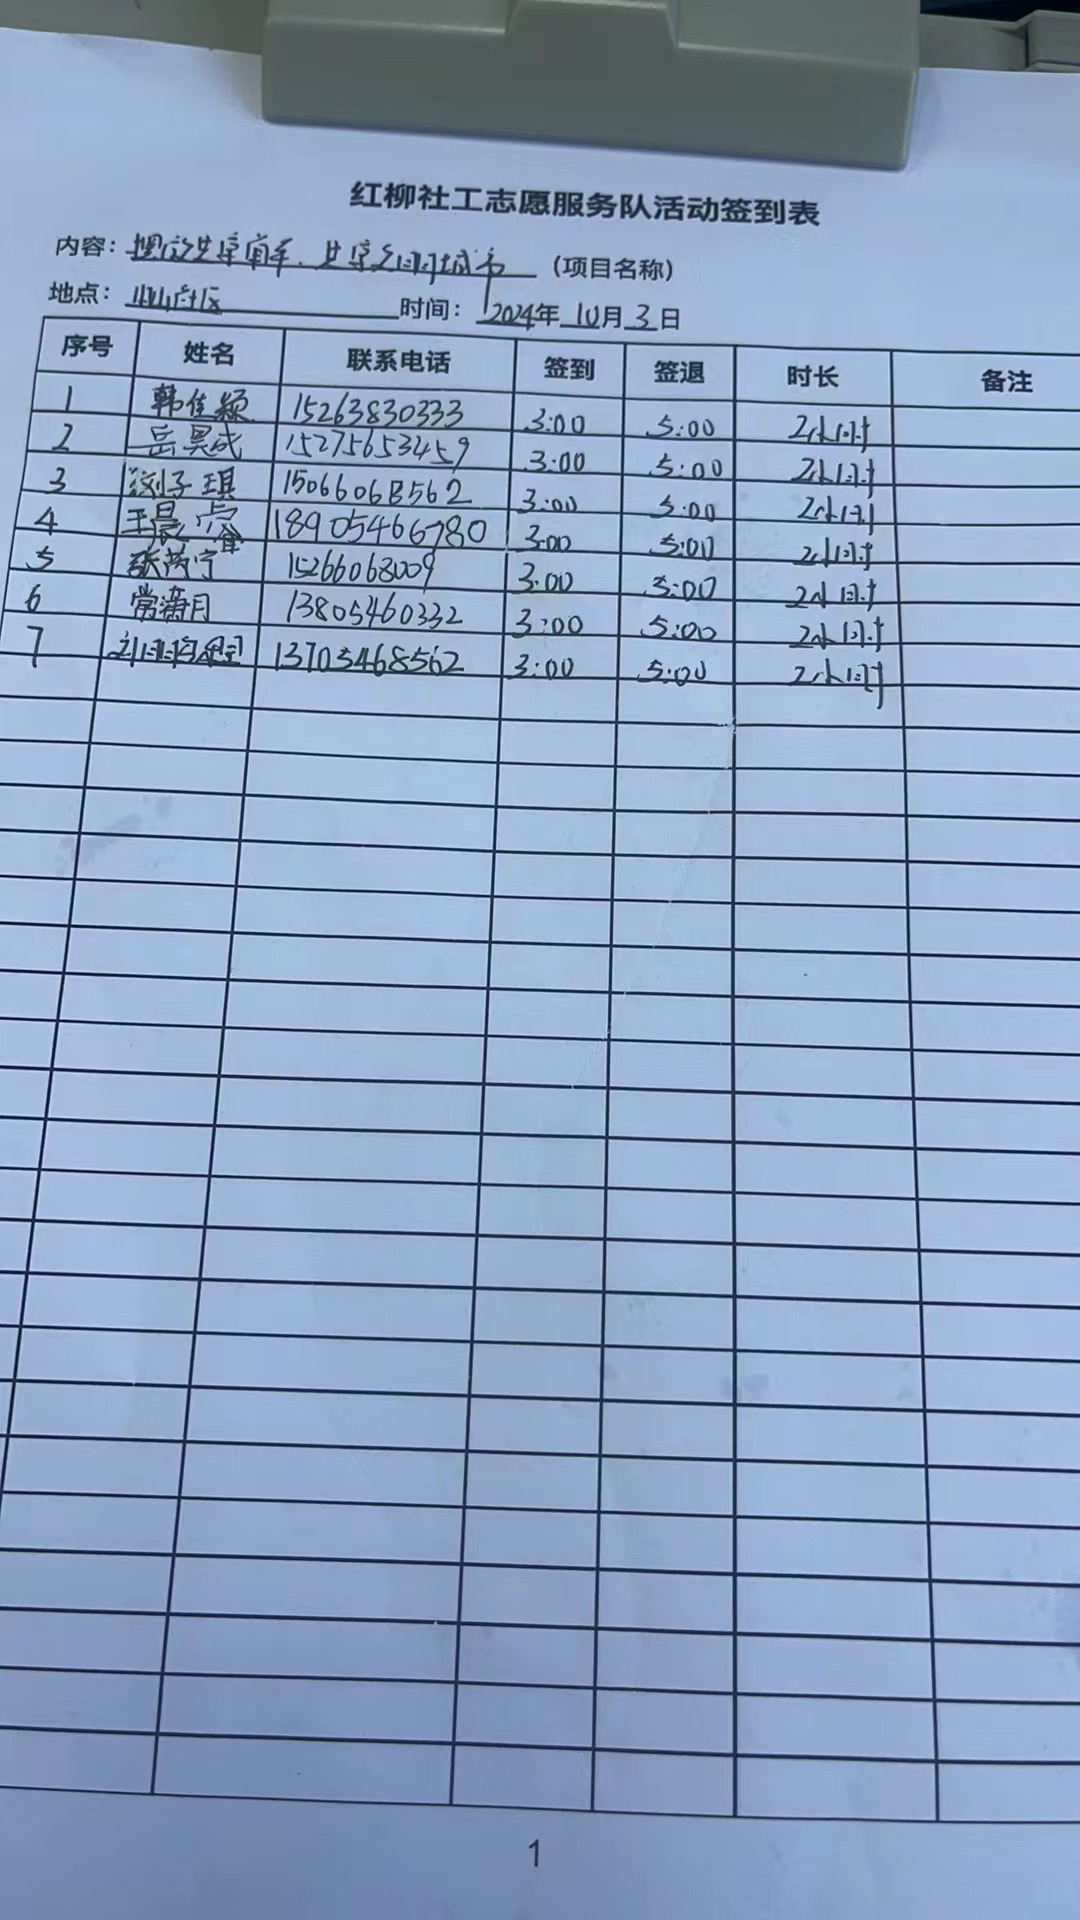 红柳社工志愿服务队活动签到表
内容：摆放共享单车、共享文明城市 （项目名称）
地点： 时间：2024年10月3日
序号 姓名 联系电话 签到 签退 时长 备注
1 韩佳颖 15263830333 3:00 5:00 2小时
2 岳昊成 15275653459 3:00 5:00 2小时
3 刘子琪 15066068562 3:00 5:00 2小时
4 王晨 18905466780 3:00 5:00 2小时
5 张芮宁 15266068009 3:00 5:00 2小时
6 常满月 13805460332 3:00 5:00 2小时
7 13703468562 3:00 5:00 2小时
1